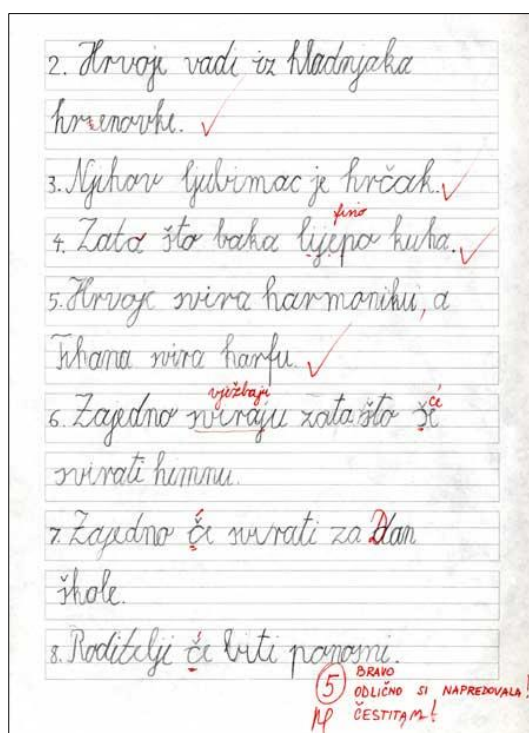 2. Hrvoje vadi iz hladnjaka
hrenovke.
3. Njihov ljubimac je hrčak.
fino
4. Zata što baka lijepo kuha.
5. Hrvoje svira harmoniku, a
Tihana svira harfu.
vježbaju
će
6. Zajedno sviraju zata što či
svirati himnu.
7. Zajedno če svirati za Dan
škole.
8. Roditelji če biti ponosni.
5 BRAVO
ODLIČNO SI NAPREDOVALA!
ČESTITAM!